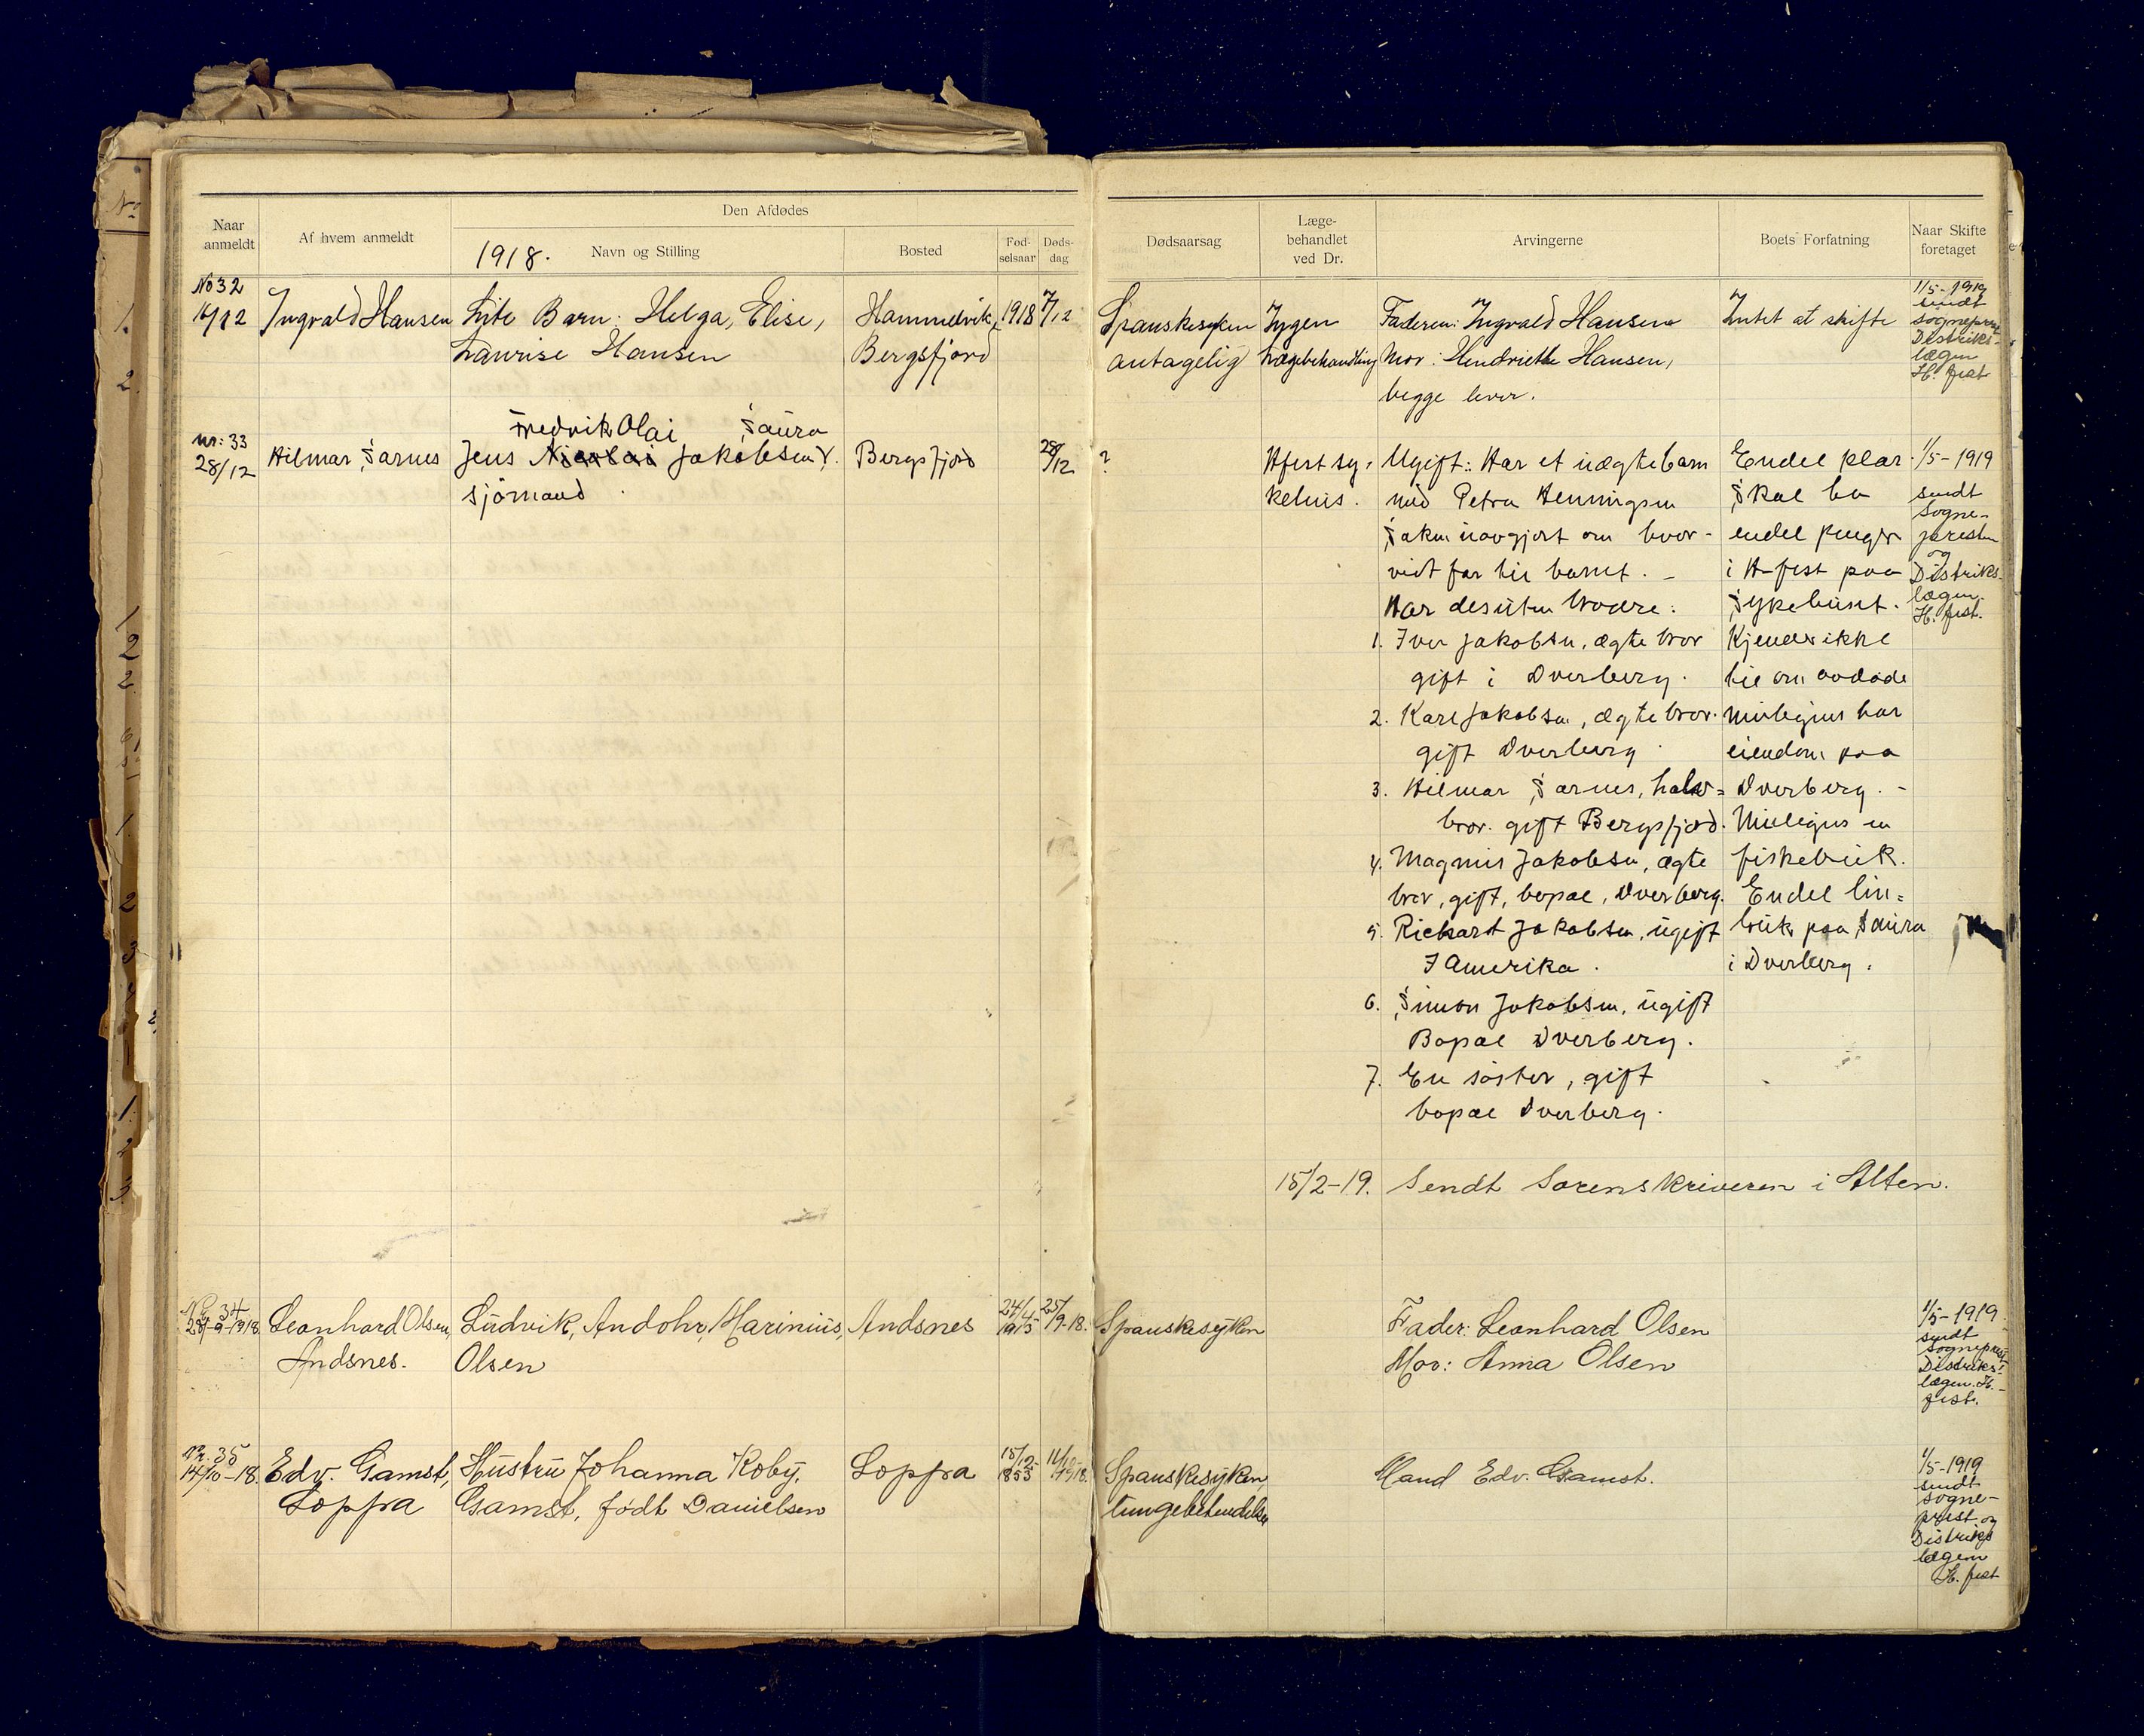 Naar anmeldt
Af hvem anmeldt
Den Afdødes
1918. Navn og Stilling
Bosted
Fød-selsaar
Døds-dag
Dødsaarsag
Læge-behandlet ved Dr.
Arvingerne
Boets Forfatning
Naar Skifte foretaget
No 32
16/12
Ingvald Hansen
Lite Barn: Helga, Elise,
Laurise Hansen
Bergsfjord
1918
7/12
Spanskesyken
antagelig
Ingen
Lægebehandling
Faderen: Ingvald Hansen
Mor: Hendriette Hansen,
begge lever.
Intet at skifte
1/5-1919
sendt
Distriks-
lægen
H. fest
nr: 33
28/12
Hilmar Sarnes
Fredrik Olai Saura
Jens Nicolai Jakobsen
sjömand
Bergsfjord
28/12
?
Hfest sy=
kehus.
Ugift: Har et uægte barn
med Petra Henningsen
Saken uavgjort om hvor-
vidt far til barnet. -
Har desuten brödre:
1. Iver Jakobsen, ægte bror
gift i Dverberg.
2. Karl Jakobsen, ægte bror.
gift Dverberg
3. Hilmar Sarnes, halv=
bror. gift Bergsfjord.
4. Magnus Jakobsen, ægte
bror, gift, bopæl, Dverberg.
5. Rickart Jakobsen, ugift
I Amerika.
6. Simon Jakobsen, ugift
Bopæl Dverberg.
7. En söster, gift
bopæl Dverberg.
Endel klær.
Skal ha
endel penger
i H-fest paa
Sykehuset.
Kjender ikke
til om avdöde
muligens har
eiendom paa
Dverberg. -
Muligens en
fiskebruk.
Endel lin=
bruk paa Saura
i Dverberg.
1/5-1919
sendt
Sogne-
presten
og
Distriks-
lægen.
H. fest.
15/2-19. Sendt Sorenskriveren i Alten.
No 34
Leonhard Olsen,
Andsnes.
Ludvik, Andohr, Marinius,
Olsen
Andsnes
24/4
1915
25/9-18.
Spanskesyken
Fader: Leonhard Olsen
Mor: Anna Olsen
1/5-1919
sendt
Sogneprest
Distriks-
lægen. H.-
fest.
Nr. 35
14/10-18.
Edv. Gamst,
Loppa
Hustru Johanna Koby,
Gamst, födt Danielsen
Loppa
15/12
1853
11/10-
1918.
Spanskesyken,
lungebetendelse
Mand Edv. Gamst.
1/5-1919
sendt
sogne-
prest og
Distriks
lægen
H. fest